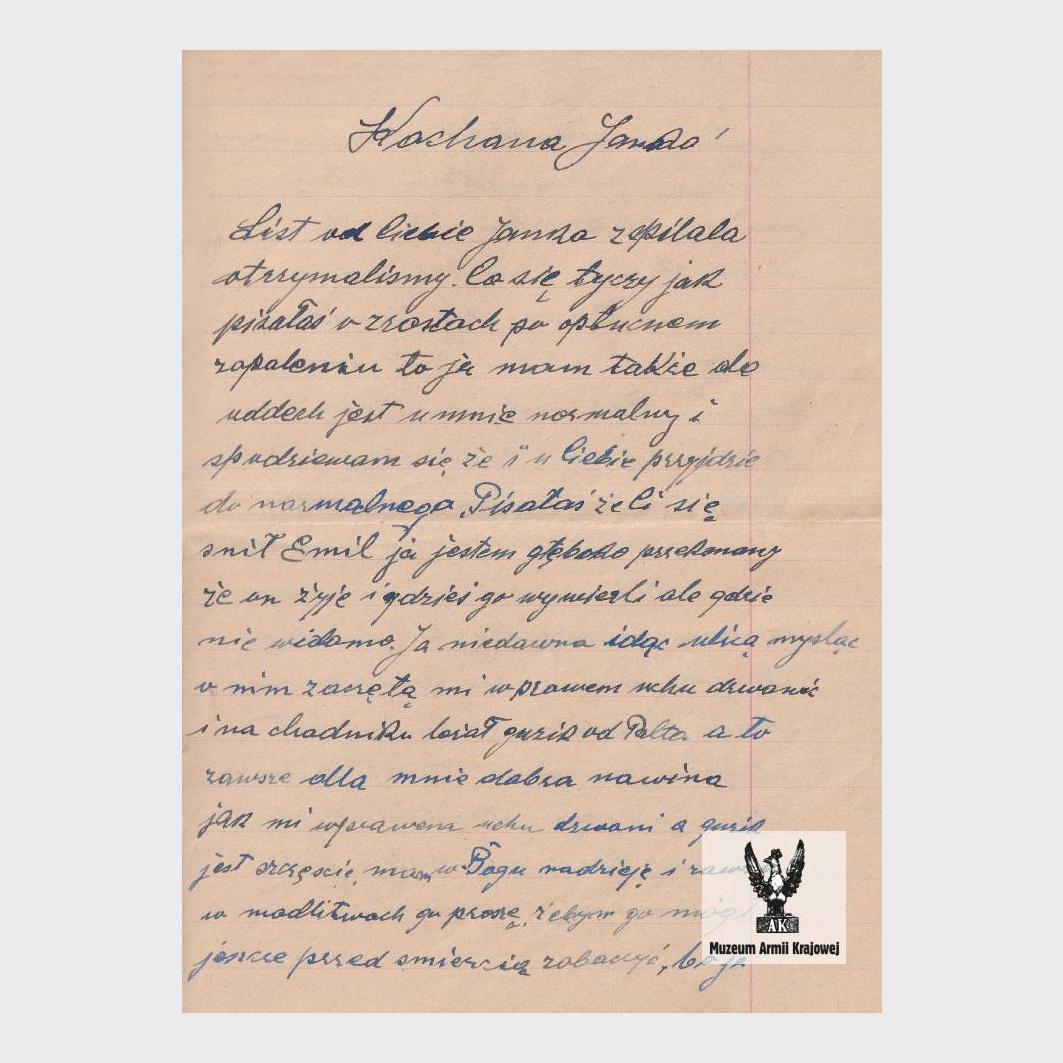 Kochana Janko
List od Ciebie Janko zspitala
otrzymalismy. Co się tyczy jak
pisałaś o zrostach po opłucnem
zapaleniu to ja mam także ale
oddech jest umnie normalny i
spodziewam się że i u Ciebie przyjdzie
do normalnego. Pisałaś że Ci się
snił Emil ja jestem głęboko przekonany
że on żyje i gdzieś go wywiezli ale gdzie
nie widomo. Ja niedawno idąc ulicą mysląc
o nim zaczęłą mi wprawem uchu dzwonić
i na chodniku leżał guzik od Palta a to
zawsze dla mnie dobra nowina
jak mi wprawem uchu dzwoni a guzik
jest szczęscie, mam w Bogu nadzieję i
w modlitwach go proszę, żebym go mógł
jeszcze przed smiercią zobaczyć, bo ja
AK
Muzeum Armii Krajowej